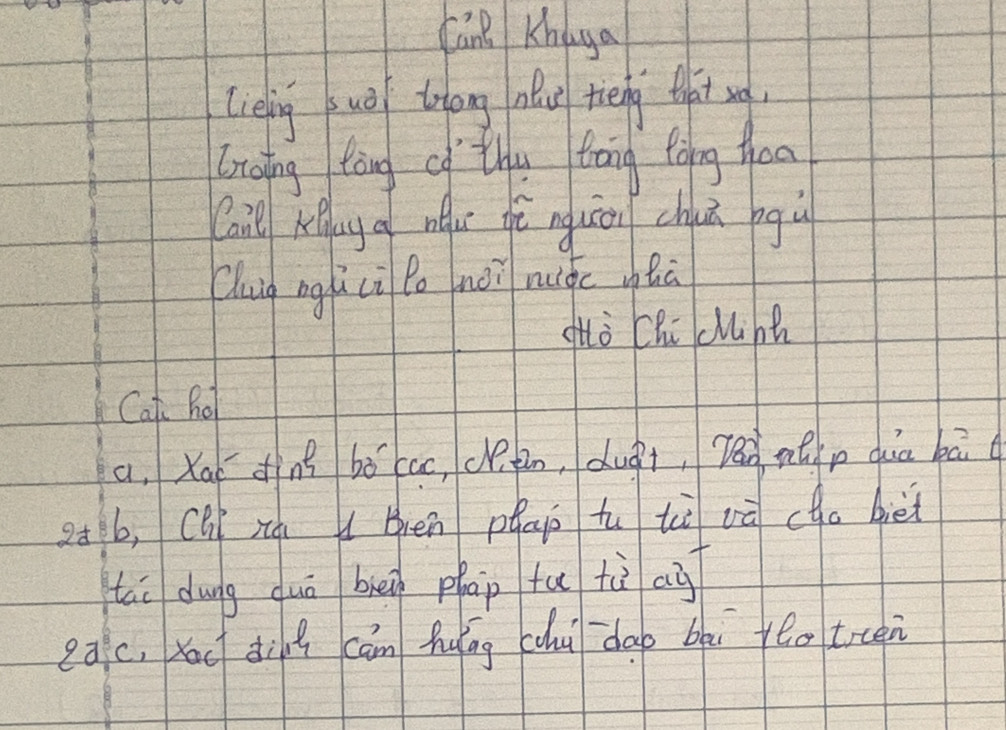 Cảnh Khuya
Tiếng suối trong như tiếng hát xa,
Trăng lồng cổ thụ bóng lồng hoa
Cảnh khuya như vẽ người chưa ngủ
Chưa ngủ vì lo nỗi nước nhà
Hồ Chí Minh
Câu hỏi
a, Xác định bố cục, luật, Vần, nhịp của bài
2đ b, Chỉ ra 1 Biện pháp tu từ và cho biết
tác dụng quả biện pháp tu từ ấy
2đ c, Xác định cảm hứng chủ đạo bài thơ trên